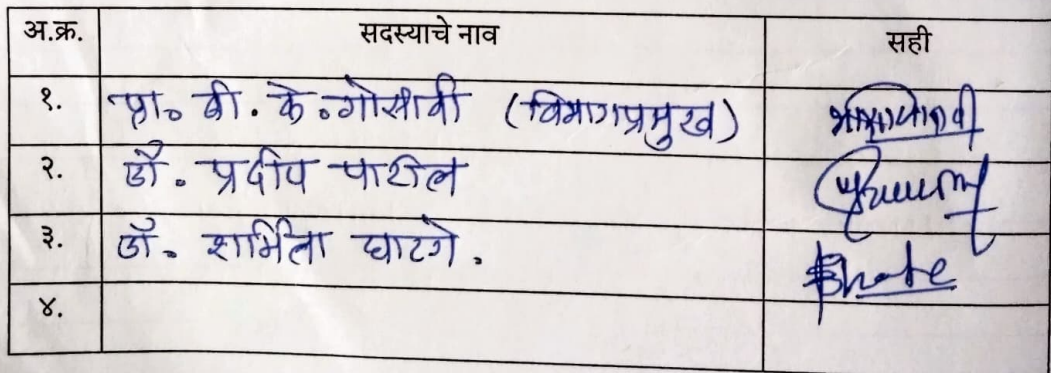 अ.क्र. सदस्याचे नाव सही
१. प्रा. बी. के. गोसावी (विभागप्रमुख)
२. डॉ. प्रदीप पाटील
३. डॉ. शर्मिला घाटगे.
४.